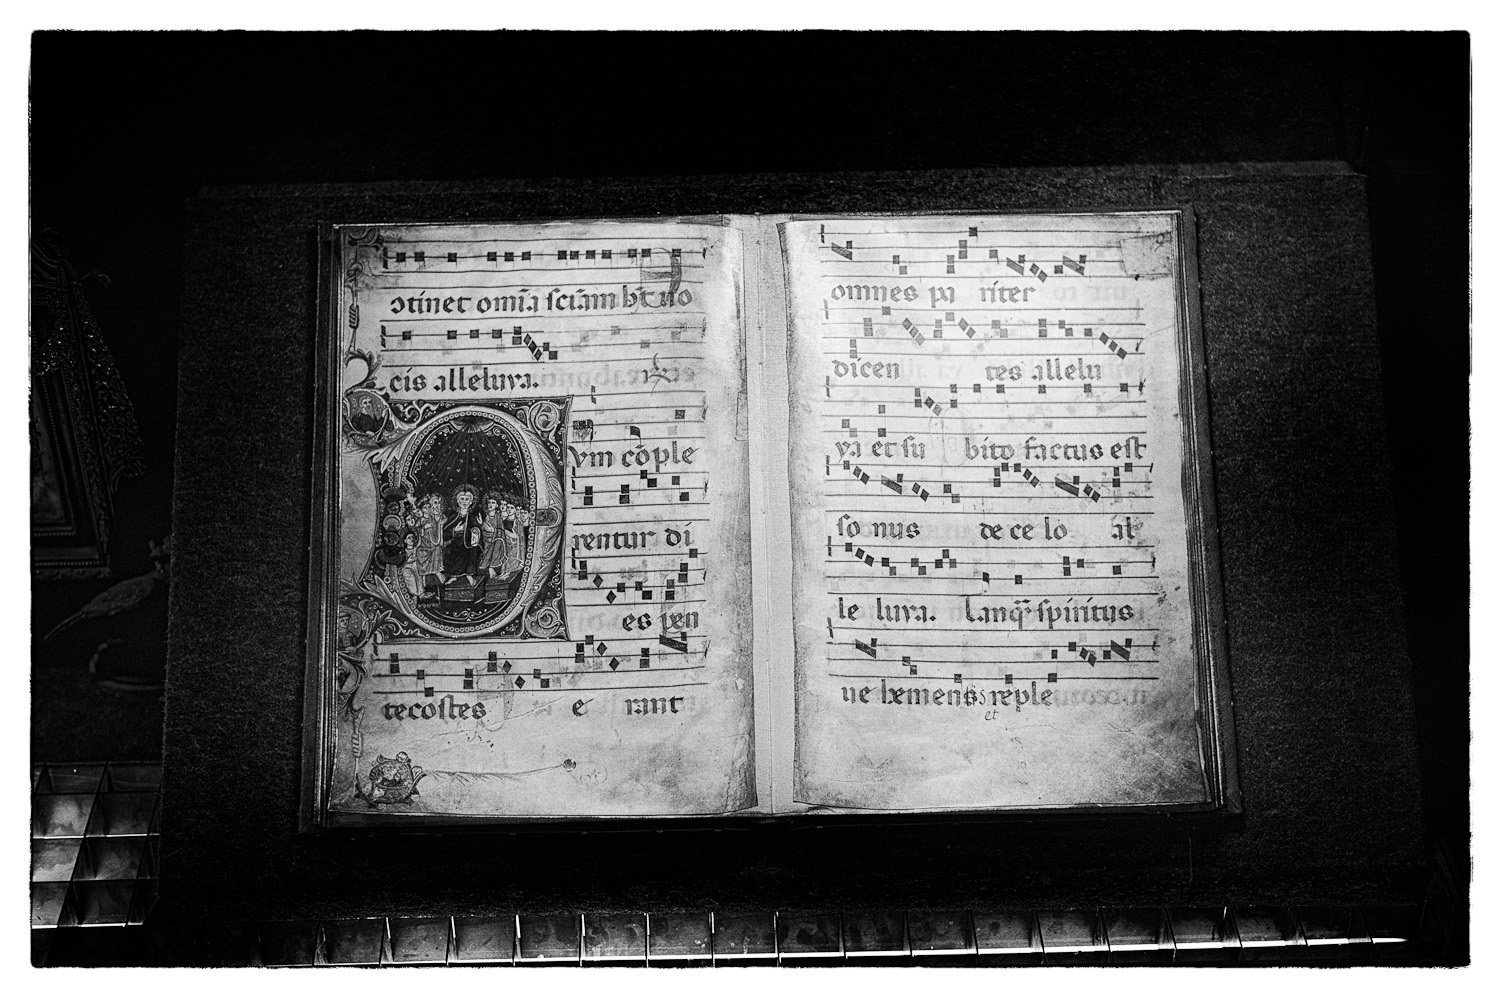 ɔtinet om̄ia sciam̄ h̄t uo
cis alleluya.
D vm cōple
rentur di
es pen
tecostes e rant
omnes pa riter
dicen tes allelu
ya et su bito factus est
so nus de ce lo al
le luya. Tanq̄ spiritus
ue hemens reple
et